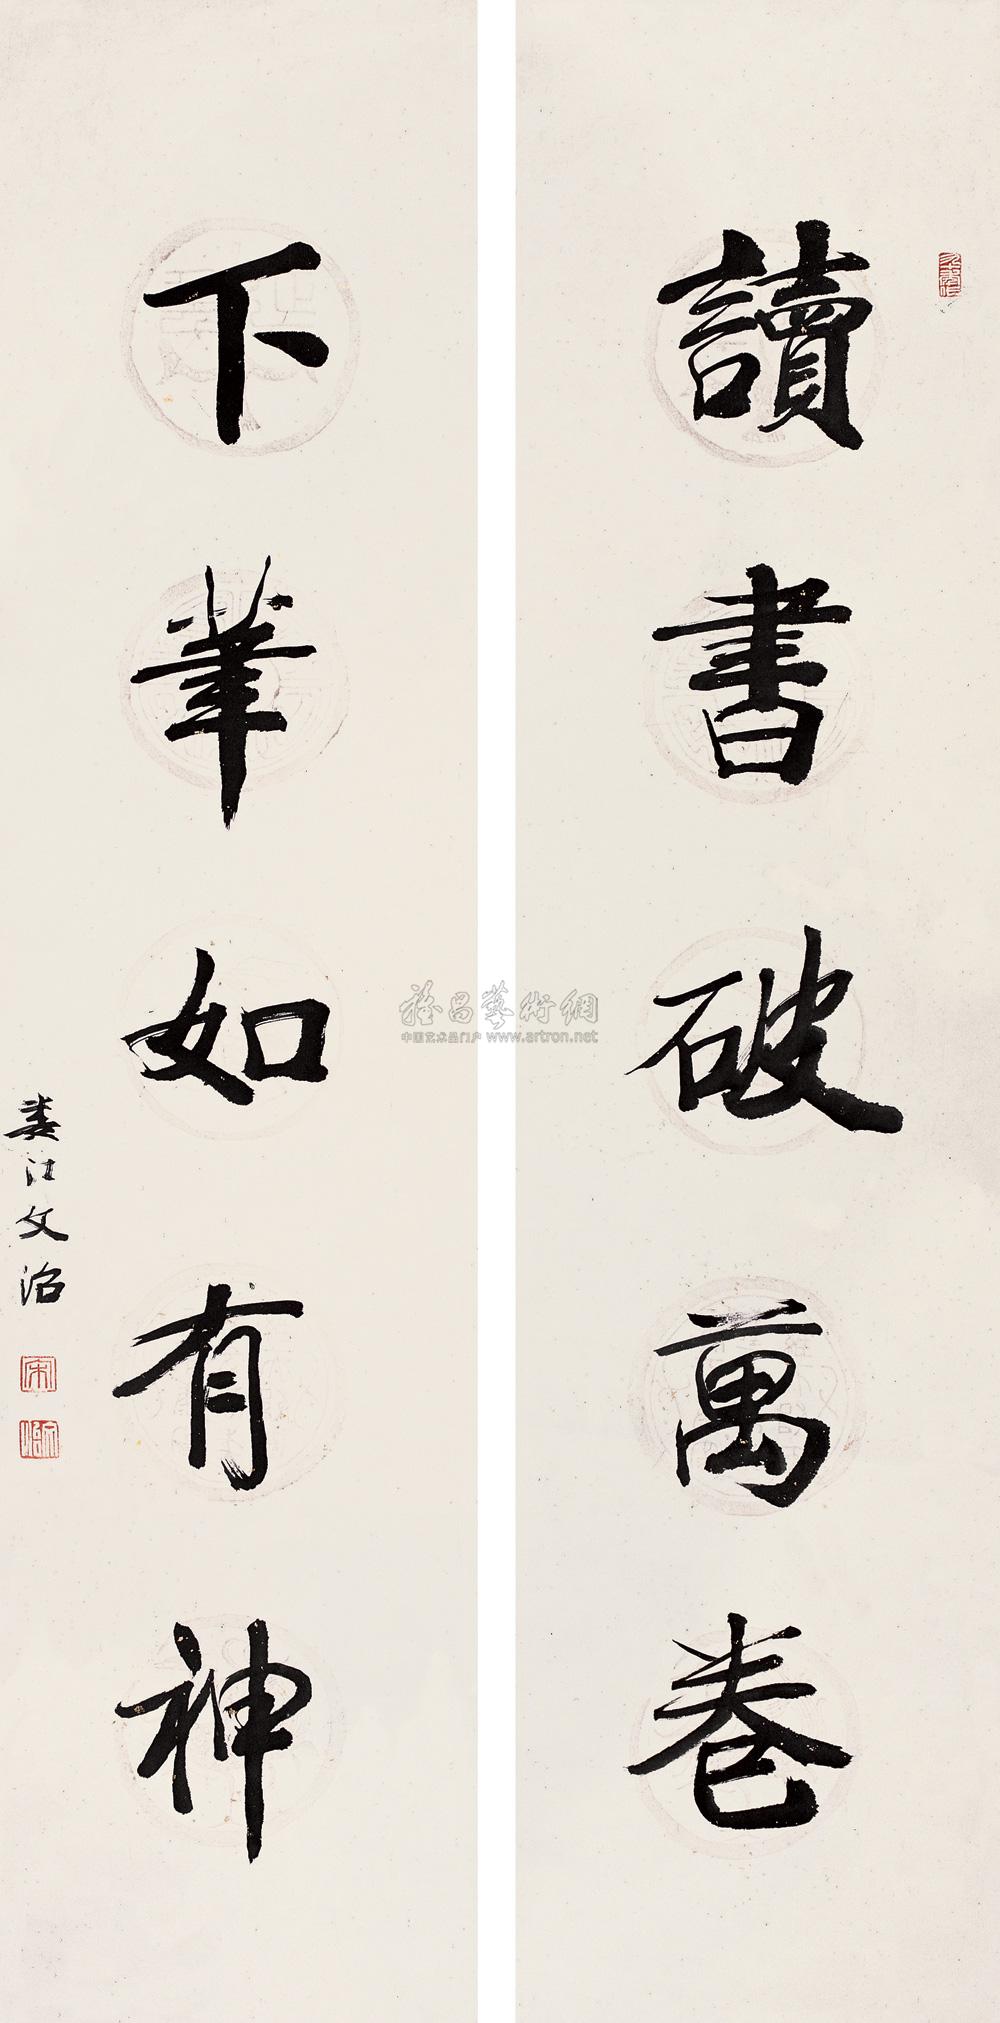 讀書破萬卷
下筆如有神
婁江文治
雅昌藝術網
中国艺术品门户 www.artron.net